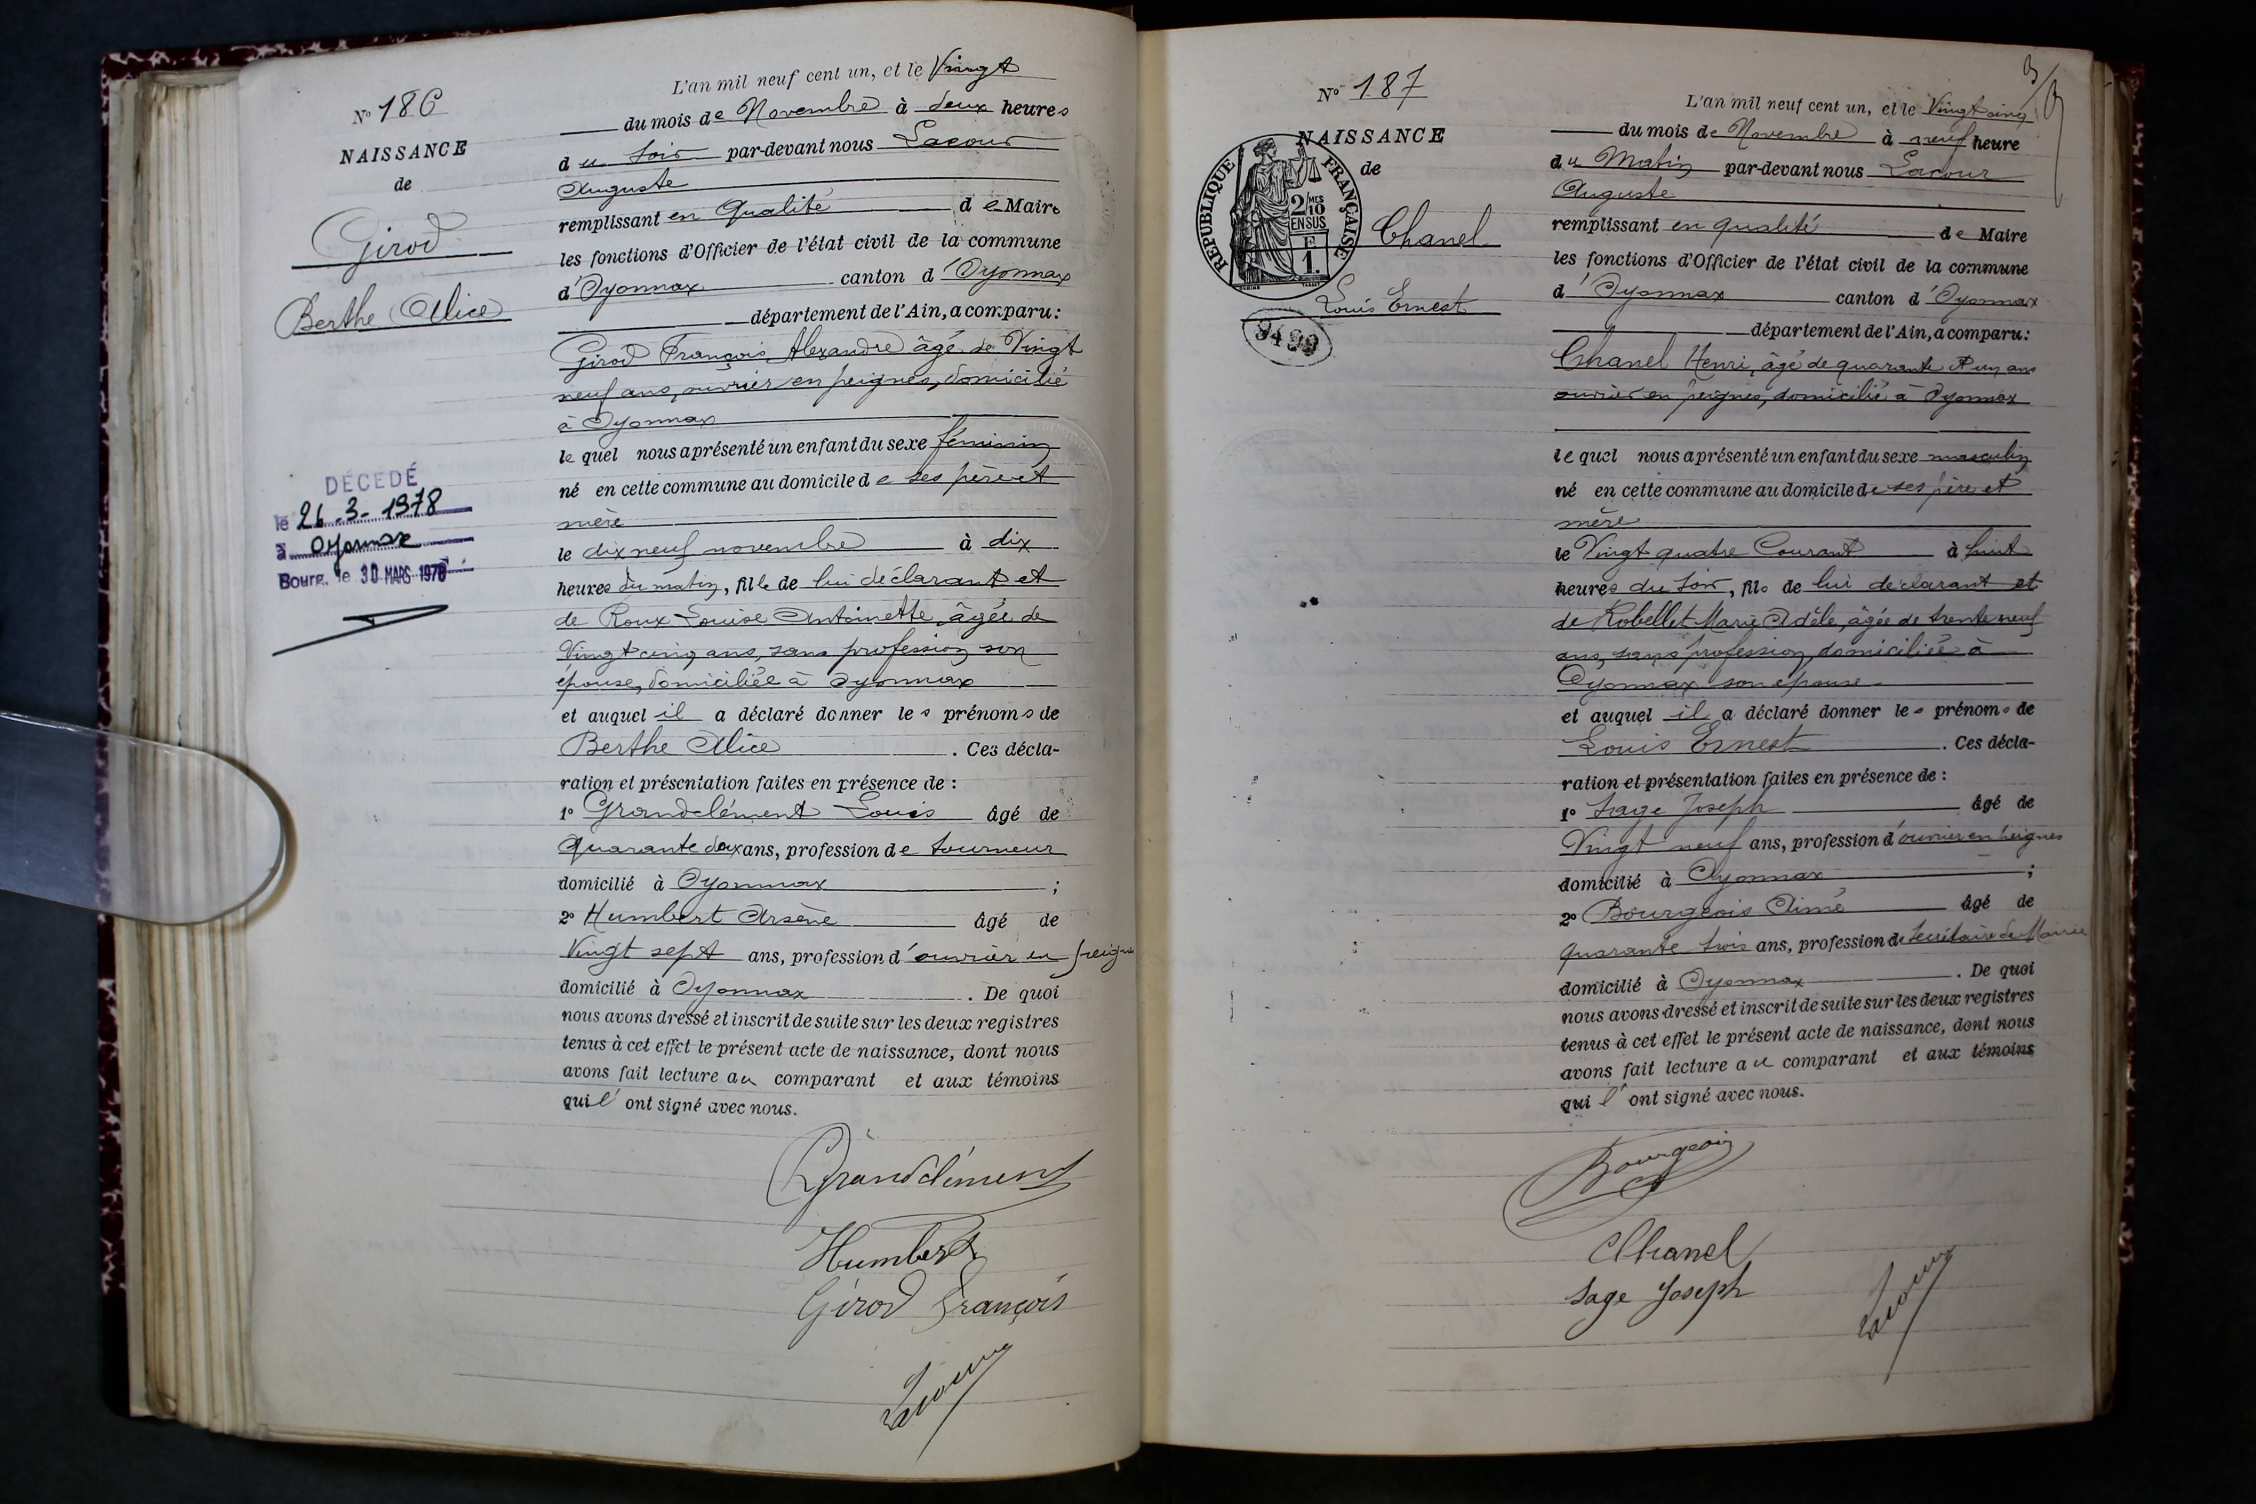 N° 186
NAISSANCE
de
Girod
Berthe Alice
DÉCÉDÉ
le 26-3-1978
à Oyonnax
Bourg, le 30 MARS 1978
L'an mil neuf cent un, et le Vingt
du mois de Novembre à deux heures
du soir par-devant nous Lacour
Auguste
remplissant en qualité de Maire
les fonctions d'Officier de l'état civil de la commune
d'Oyonnax canton d'Oyonnax
département de l'Ain, a comparu :
Girod François Alexandre âgé de Vingt
neuf ans, ouvrier en peignes, domicilié
à Oyonnax
lequel nous a présenté un enfant du sexe féminin
né en cette commune au domicile de ses père et
mère
le dix neuf novembre à dix
heures du matin, fille de lui déclarant et
de Roux Louise Antoinette, âgée de
Vingt cinq ans, sans profession son
épouse, domiciliée à Oyonnax
et auquel il a déclaré donner les prénoms de
Berthe Alice . Ces décla-
ration et présentation faites en présence de :
1° Grandclément Louis âgé de
Quarante deux ans, profession de tourneur
domicilié à Oyonnax ;
2° Humbert Arsène âgé de
Vingt sept ans, profession d'ouvrier en peigne
domicilié à Oyonnax . De quoi
nous avons dressé et inscrit de suite sur les deux registres
tenus à cet effet le présent acte de naissance, dont nous
avons fait lecture au comparant et aux témoins
qui l'ont signé avec nous.
Grandclément
Humbert
Girod François
Lacour
N° 187
NAISSANCE
de
RÉPUBLIQUE FRANÇAISE
2/10 MES
EN SUS
F
1.
Chanel
Louis Ernest
9499
L'an mil neuf cent un, et le Vingt cinq
du mois de Novembre à neuf heure
du Matin par-devant nous Lacour
Auguste
remplissant en qualité de Maire
les fonctions d'Officier de l'état civil de la commune
d'Oyonnax canton d'Oyonnax
département de l'Ain, a comparu :
Chanel Henri, âgé de quarante et un ans
ouvrier en peignes, domicilié à Oyonnax
lequel nous a présenté un enfant du sexe masculin
né en cette commune au domicile de ses père et
mère
le Vingt quatre Courant à huit
heures du soir, fils de lui déclarant et
de Robellet Marie Adèle, âgée de trente neuf
ans, sans profession, domiciliée à
Oyonnax son épouse
et auquel il a déclaré donner les prénoms de
Louis Ernest . Ces décla-
ration et présentation faites en présence de :
1° Sage Joseph âgé de
Vingt neuf ans, profession d'ouvrier en peignes
domicilié à Oyonnax ;
2° Bourgeois Aimé âgé de
quarante trois ans, profession de Secrétaire de Mairie
domicilié à Oyonnax . De quoi
nous avons dressé et inscrit de suite sur les deux registres
tenus à cet effet le présent acte de naissance, dont nous
avons fait lecture au comparant et aux témoins
qui l'ont signé avec nous.
Bourgeois
Chanel
Sage Joseph
Lacour